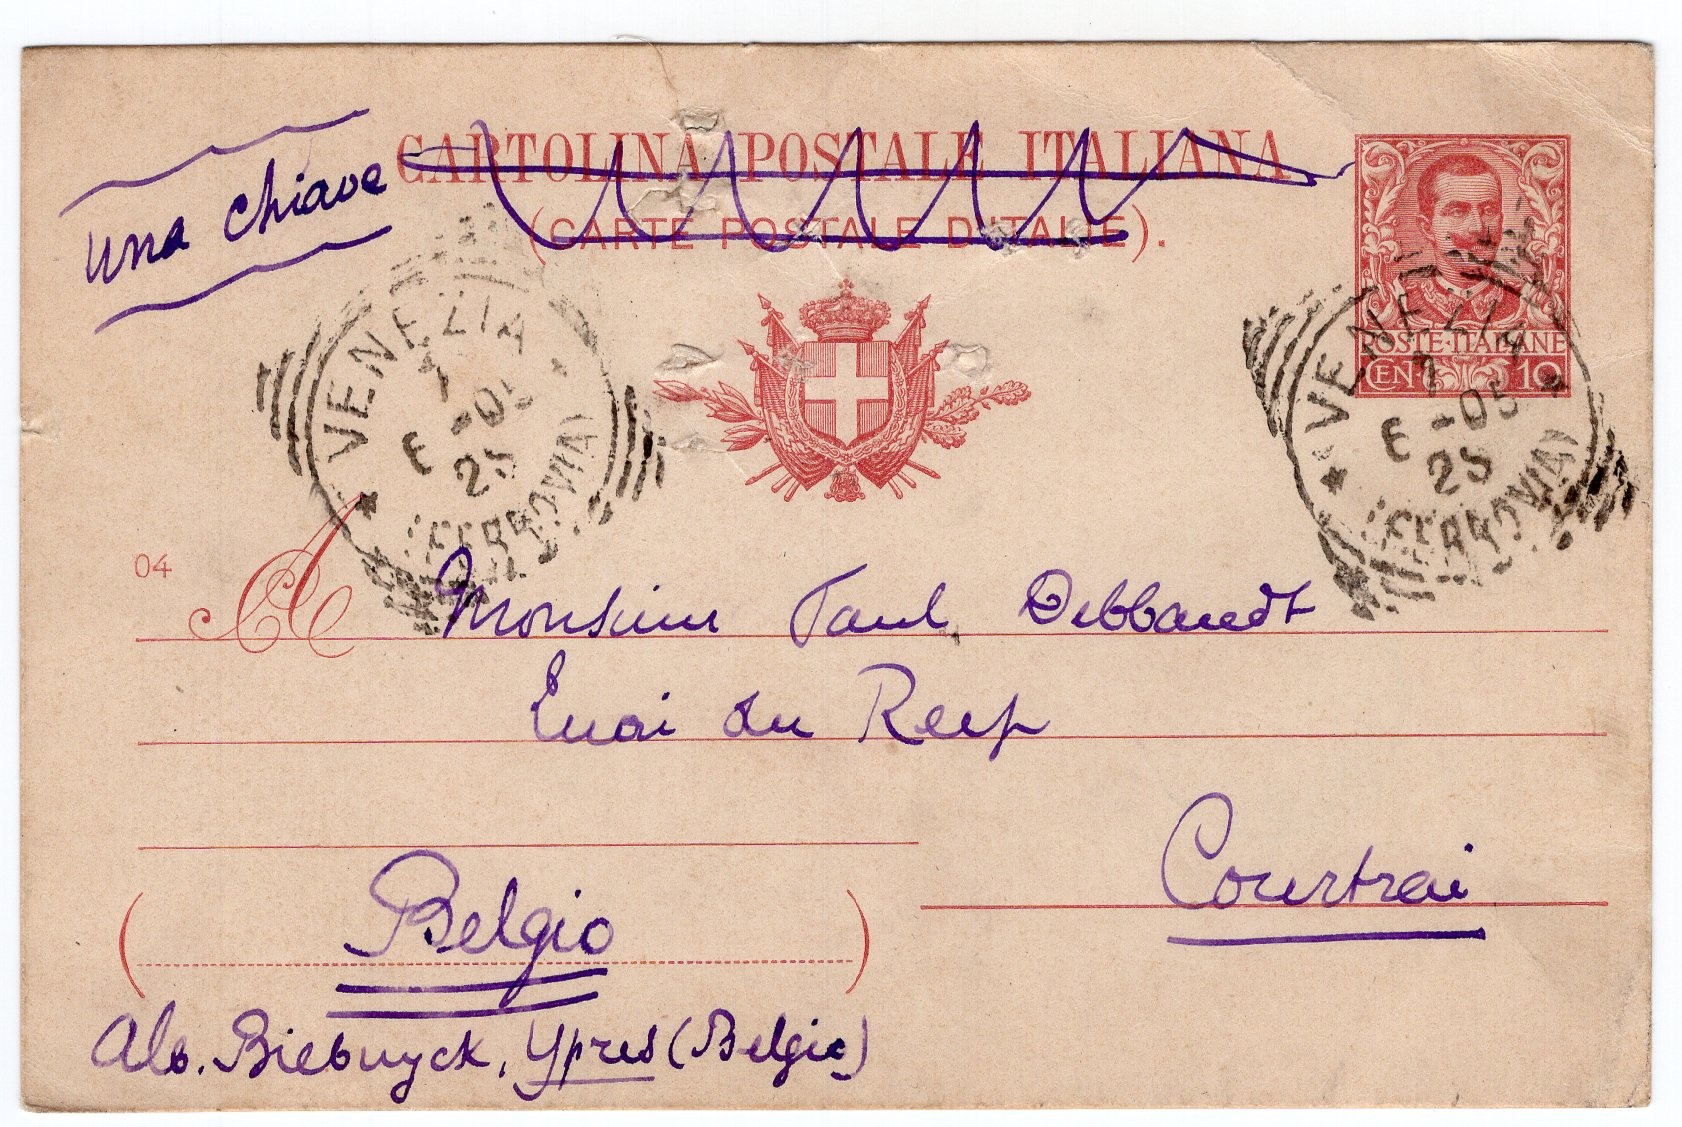 una chiave
CARTOLINA POSTALE ITALIANA
(CARTE POSTALE D'ITALIE).
POSTE·ITALIANE
CEN· 10
VENEZIA
7
6 -05
23
(FERROVIA)
VENEZIA
7
6 -05
23
(FERROVIA)
04
A Monsieur Paul Debbaudt
Quai du Reep
Courtrai
(Belgio)
Alb. Biebuyck, Ypres (Belgio)